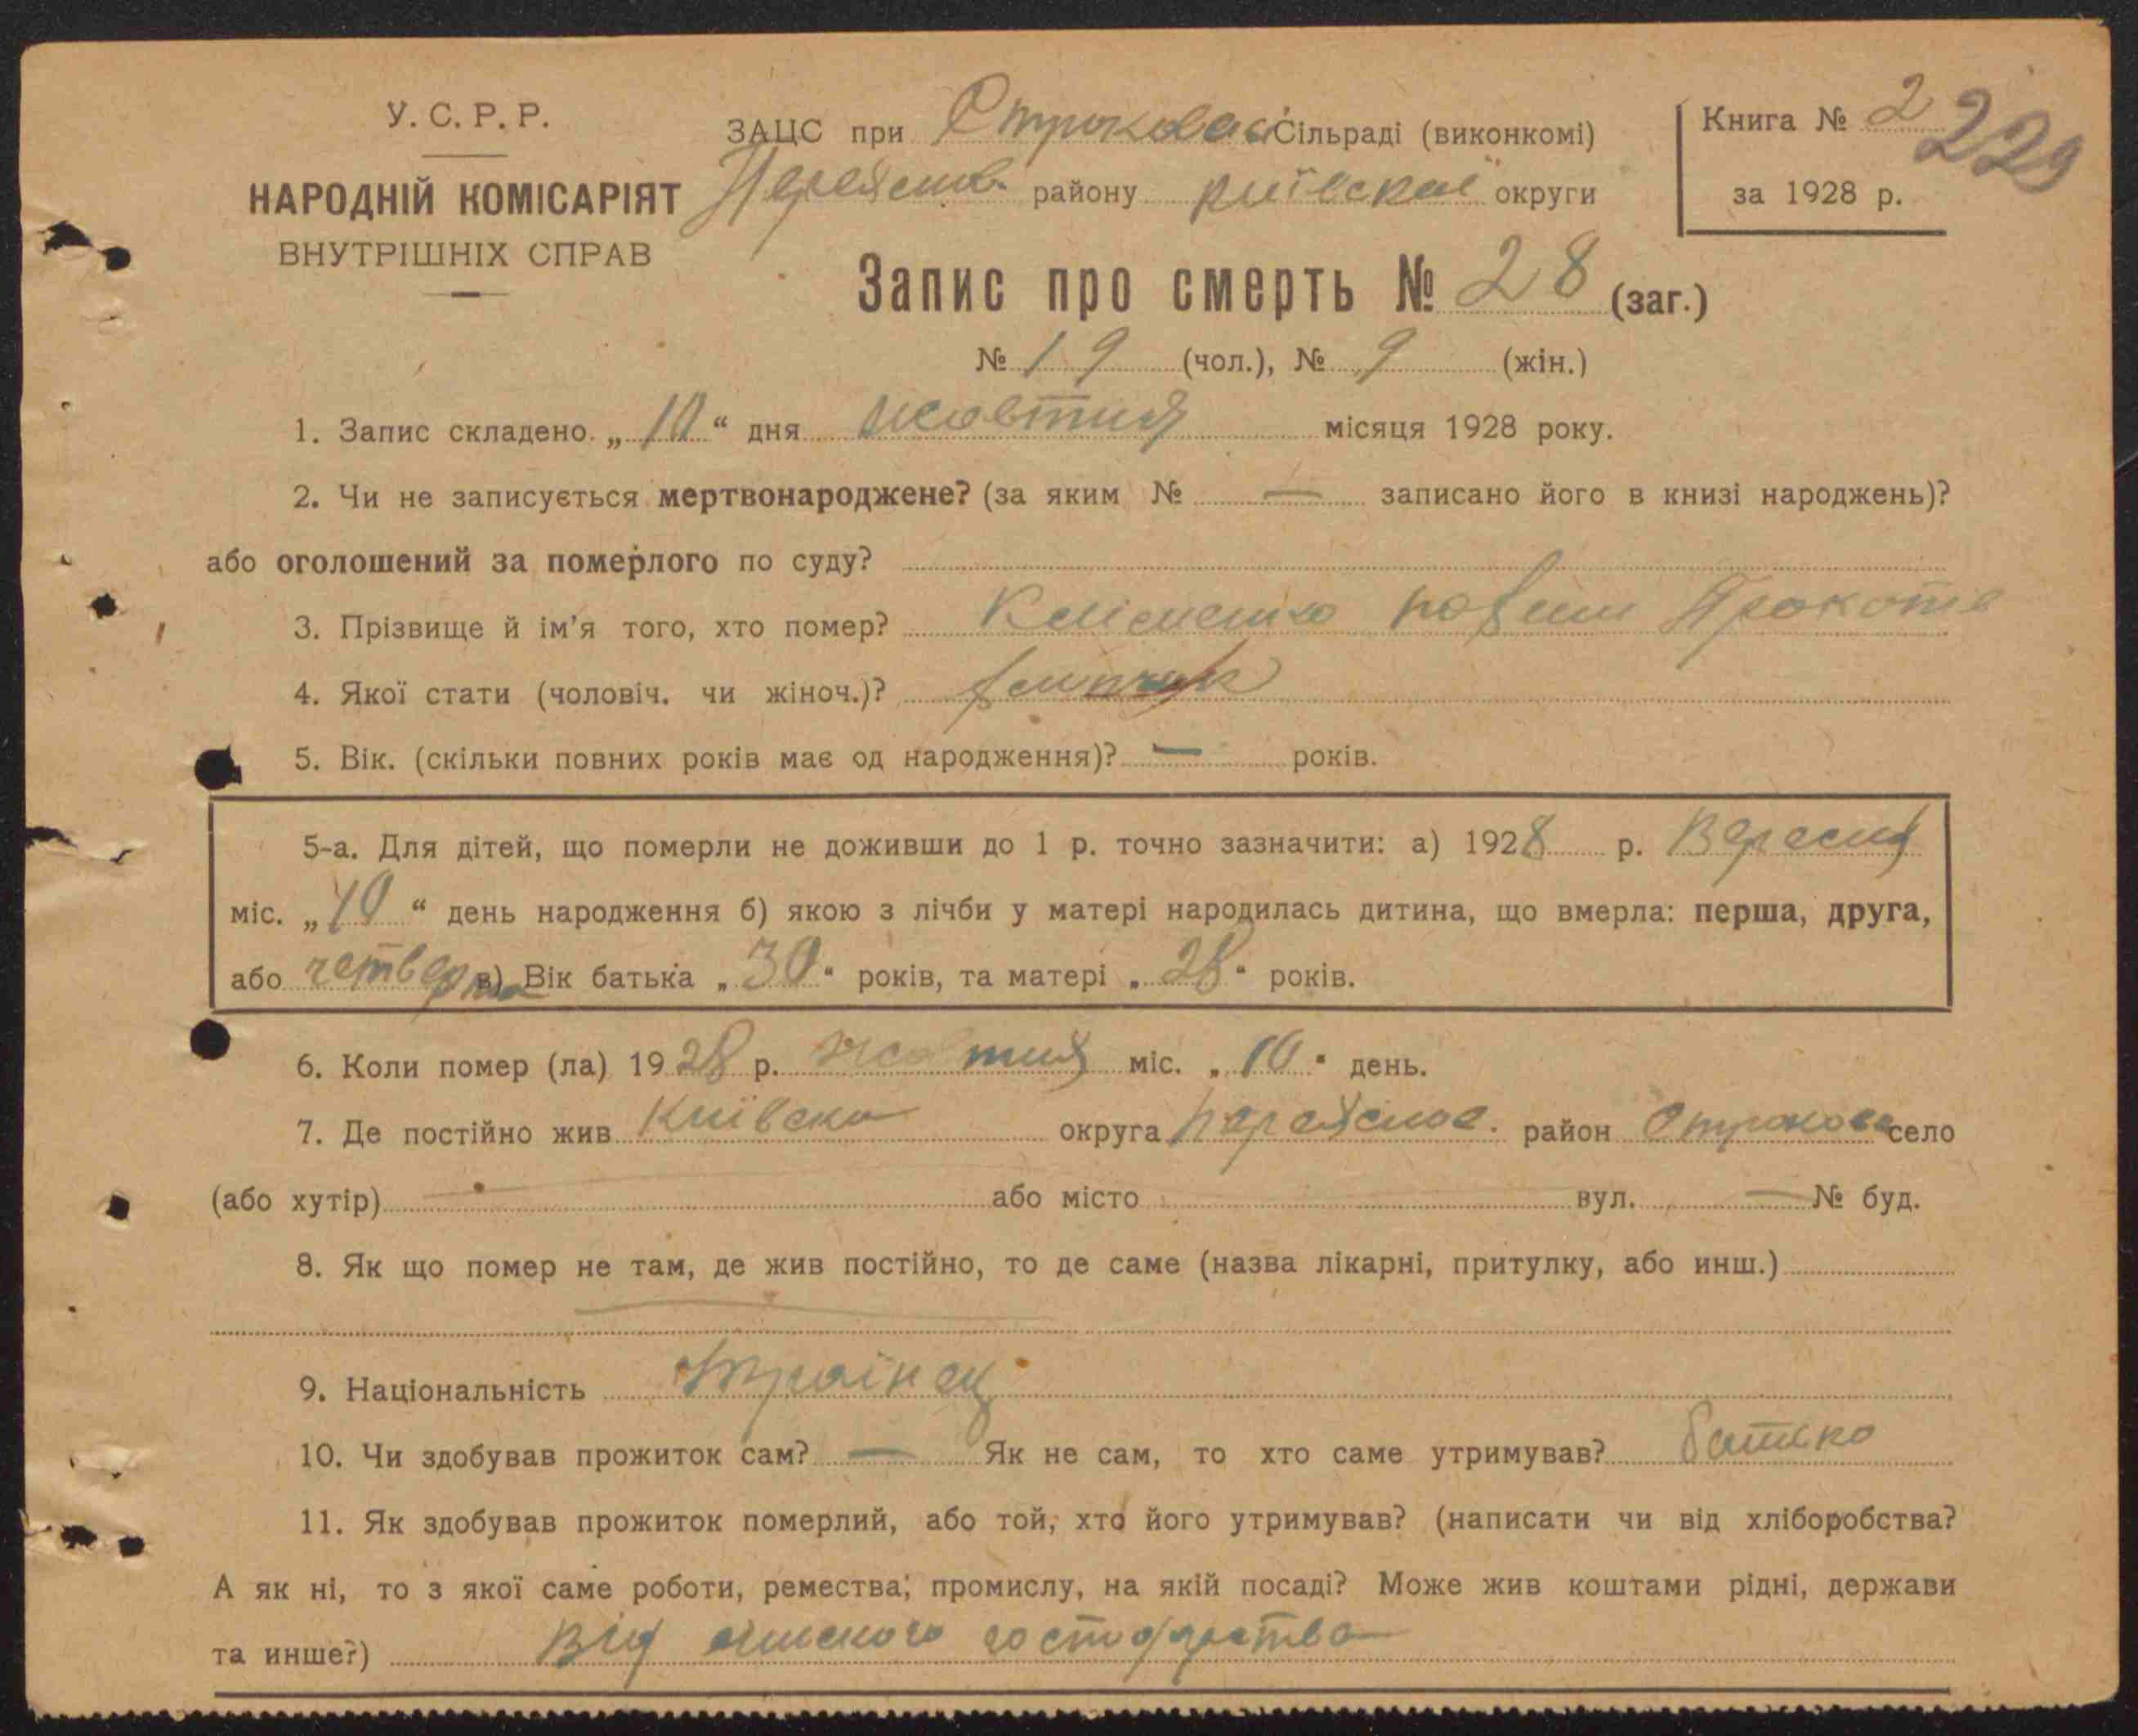 У. С. Р. Р.
НАРОДНІЙ КОМІСАРІЯТ
ВНУТРІШНІХ СПРАВ
ЗАЦС при Строковас Сільраді (виконкомі)
Переяслов. району Київскої округи
Книга № 2 229
за 1928 р.
Запис про смерть № 28 (заг.)
№ 19 (чол.), № 9 (жін.)
1. Запис складено „10“ дня жовтня місяця 1928 року.
2. Чи не записується мертвонароджене? (за яким № — записано його в книзі народжень)?
або оголошений за померлого по суду?
3. Прізвище й ім’я того, хто помер? Кліменко
4. Якої стати (чоловіч. чи жіноч.)?
5. Вік. (скільки повних років має од народження)? — років.
5-а. Для дітей, що померли не доживши до 1 р. точно зазначити: а) 1928 р. Вересня
міс. „10“ день народження б) якою з лічби у матері народилась дитина, що вмерла: перша, друга,
або четверта в) Вік батька „30“ років, та матері „28“ років.
6. Коли помер (ла) 1928 р. жовтня міс. „10“ день.
7. Де постійно жив Київска округа Переяслов. район Строкова село
(або хутір) — або місто — вул. — № буд.
8. Як що помер не там, де жив постійно, то де саме (назва лікарні, притулку, або инш.)
9. Національність Українец
10. Чи здобував прожиток сам? — Як не сам, то хто саме утримував? батько
11. Як здобував прожиток померлий, або той, хто його утримував? (написати чи від хліборобства?
А як ні, то з якої саме роботи, ремества, промислу, на якій посаді? Може жив коштами рідні, держави
та инше?) Від сільского господарства